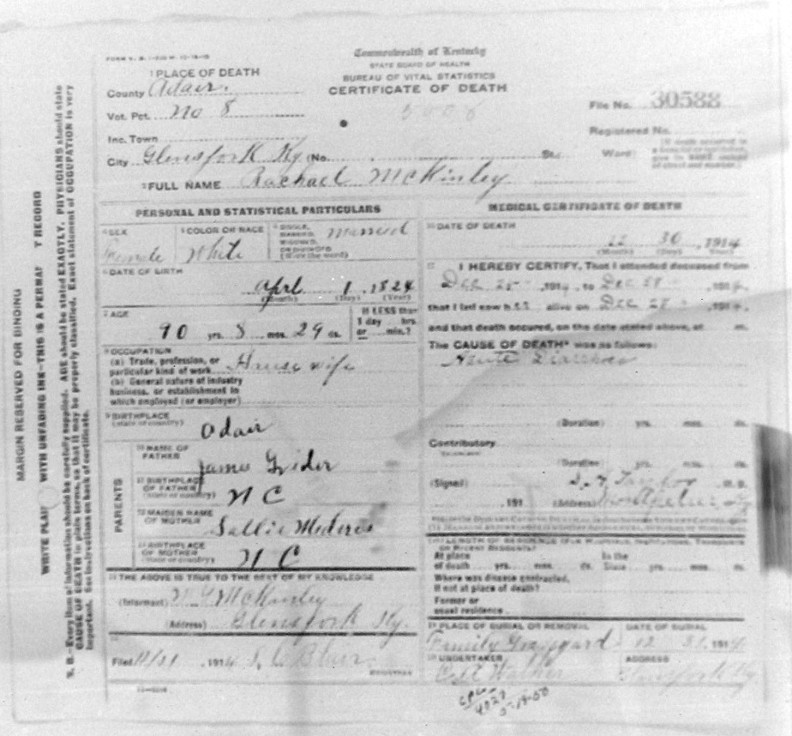 FORM V. S.
Commonwealth of Kentucky
STATE BOARD OF HEALTH
BUREAU OF VITAL STATISTICS
CERTIFICATE OF DEATH
1 PLACE OF DEATH
County Adair.
Vot. Pct. No 8
File No. 30588
Registered No.
Inc. Town
City Glensfork Ky. (No. St.; Ward)
2 FULL NAME Rachael McKinley
PERSONAL AND STATISTICAL PARTICULARS
3 SEX Female
4 COLOR OR RACE White
5 SINGLE, MARRIED, WIDOWED, OR DIVORCED (Write the word) Married
6 DATE OF BIRTH
April 1, 1824
(Month) (Day) (Year)
7 AGE
90 yrs. 8 mos. 29 ds.
If LESS than 1 day hrs. or min.?
8 OCCUPATION
(a) Trade, profession, or particular kind of work House wife
(b) General nature of industry business, or establishment in which employed (or employer)
9 BIRTHPLACE
(State or country) Adair
PARENTS
10 NAME OF FATHER James Grider
11 BIRTHPLACE OF FATHER (State or country) N C
12 MAIDEN NAME OF MOTHER Sallie
13 BIRTHPLACE OF MOTHER (State or country) N C
14 THE ABOVE IS TRUE TO THE BEST OF MY KNOWLEDGE
(Informant) McKinley
(Address) Glensfork Ky.
15
Filed 12/31, 1914 Blair
REGISTRAR
MEDICAL CERTIFICATE OF DEATH
16 DATE OF DEATH
12 30, 1914
(Month) (Day) (Year)
17 I HEREBY CERTIFY, That I attended deceased from
Dec 25, 1914, to Dec 28, 1914,
that I last saw her alive on Dec 28, 1914,
and that death occured, on the date stated above, at m.
The CAUSE OF DEATH* was as follows:
Acute Diarrhoea
(Duration) yrs. mos. ds.
Contributory
(Duration) yrs. mos. ds.
(Signed) Taylor M. D.
, 191 (Address) Montpelier Ky
18 LENGTH OF RESIDENCE
At place of death yrs. mos. ds. In the State yrs. mos. ds.
Where was disease contracted,
if not at place of death?
Former or usual residence
19 PLACE OF BURIAL OR REMOVAL
Family Graveyard
DATE OF BURIAL
12 31, 1914
20 UNDERTAKER
Walker
ADDRESS
Glensfork Ky
MARGIN RESERVED FOR BINDING
WRITE PLAI WITH UNFADING INK—THIS IS A PERMA T RECORD
N. B.—Every item of information should be carefully supplied. AGE should be stated EXACTLY. PHYSICIANS should state
CAUSE OF DEATH in plain terms, so that it may be properly classified. Exact statement of OCCUPATION is very
important. See instructions on back of certificate.